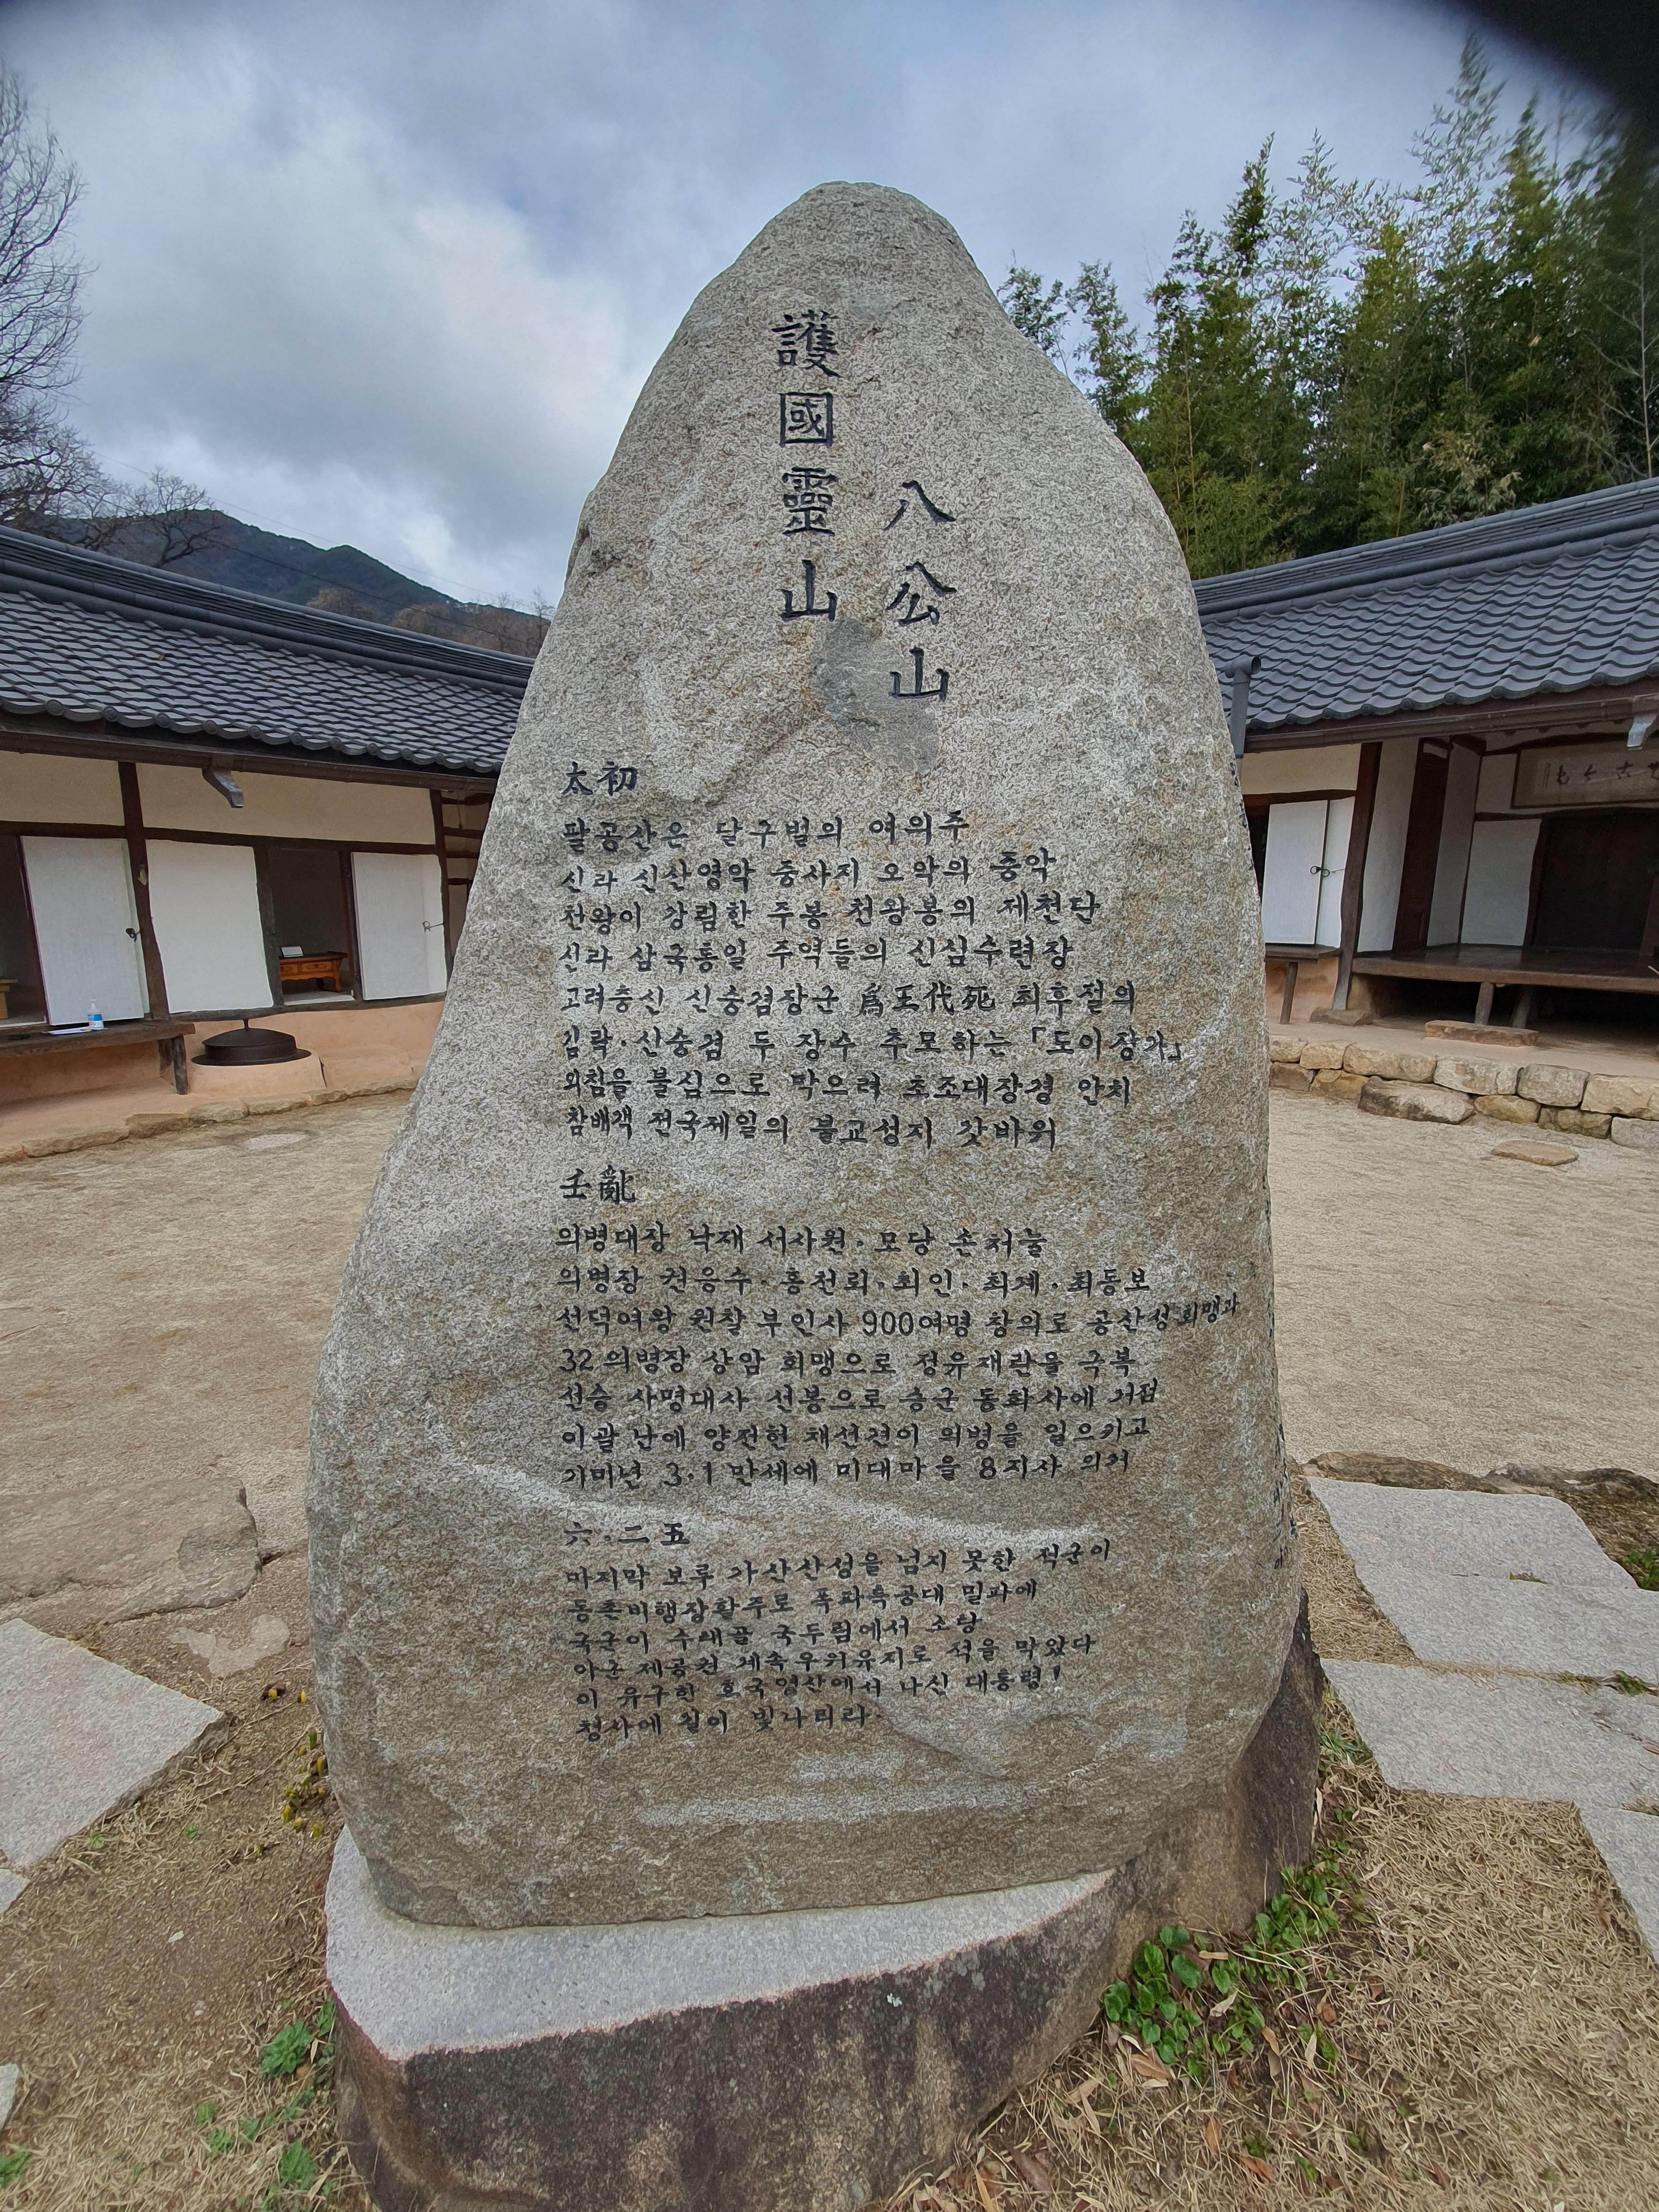 八公山
護國靈山
太初
팔공산은 달구벌의 여의주
신라 신산영악 중사지 오악의 중악
천왕이 강림한 주봉 천왕봉의 제천단
신라 삼국통일 주역들의 신심수련장
고려충신 신숭겸장군 爲王代死 최후절의
김락·신숭겸 두 장수 추모하는 「도이장가」
외침을 불심으로 막으려 초조대장경 안치
참배객 전국제일의 불교성지 갓바위
壬亂
의병대장 낙재 서사원·모당 손처눌
의병장 권응수·홍천뢰·최인·최계·최동보
선덕여왕 원찰 부인사 900여명 창의로 공산성회맹과
32의병장 상암 회맹으로 정유재란을 극복
선승 사명대사 선봉으로 승군 동화사에 거점
이괄 난에 양전헌 채선견이 의병을 일으키고
기미년 3·1 만세에 미대마을 8지사 의거
六·二五
마지막 보루 가산산성을 넘지 못한 적군이
동촌비행장활주로 폭파특공대 밀파에
국군이 수태골 국두림에서 소탕
아군 제공권 계속우위유지로 적을 막았다
이 유구한 호국영산에서 나신 대통령!
청사에 길이 빛나리라·